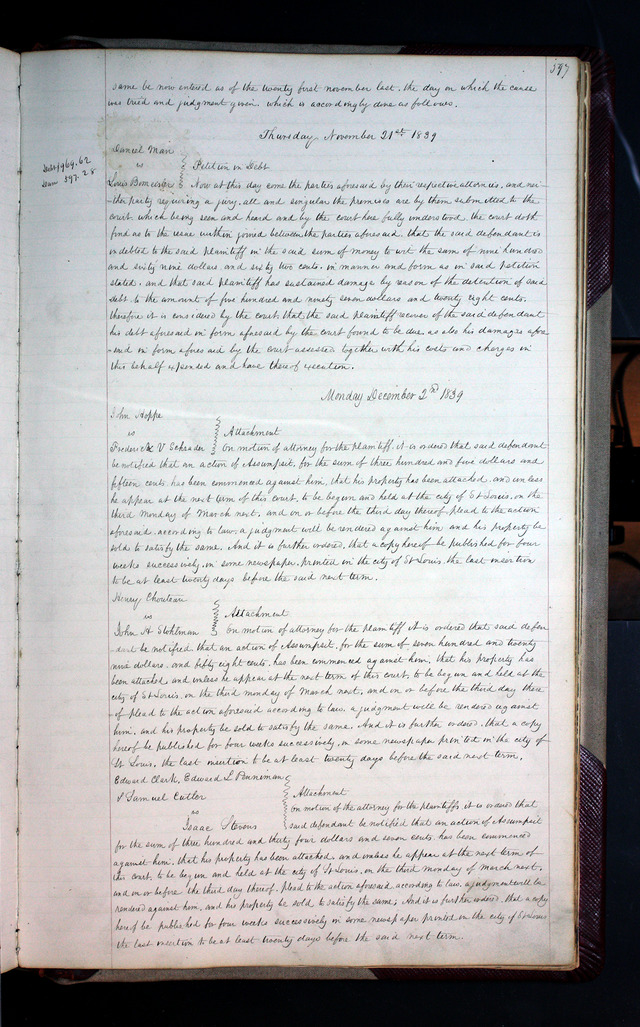 597
same be now entered as of the twenty first november last. the day on which the cause
was tried and judgment given. which is accordingly done as follows.
Thursday November 21st 1839
Daniel Man
vs
Petition in Debt
Debt $969.62
Dam 597.28
Louis Bomeisler
Now at this day come the parties aforesaid by their respective attornies, and nei-
ther party requiring a jury, all and singular the premises are by them submitted to the
court which being seen and heard and by the court here fully understood. the court doth
find as to the issue within joined between the parties aforesaid. that the said defendant is
indebted to the said plaintiff in the said sum of money to wit the sum of nine hundred
and sixty nine dollars and sixty two cents. in manner and form as in said Petition
stated. and that said plaintiff has sustained damage by reason of the detention of said
debt to the amount of five hundred and ninety seven dollars and twenty eight cents.
therefore it is considered by the court that the said plaintiff recover of the said defendant
his debt aforesaid in form aforesaid by the court found to be due as also his damages afore
said in form aforesaid by the court assessed together with his costs and charges in
this behalf expended and have thereof execution.
Monday December 2nd 1839
John Hoppe
vs
Attachment
Frederick V Schrader
On motion of attorney for the plaintiff. it is ordered that said defendant
be notified that an action of Assumpsit, for the sum of three hundred and five dollars and
fifteen cents. has been commenced against him, that his property has been attached, and unless
he appear at the next term of this court, to be begun and held at the city of St Louis. on the
third Monday of March next. and on or before the third day thereof plead to the action
aforesaid. according to law. a judgment will be rendered against him and his property be
sold to satisfy the same. And it is further ordered. that a copy hereof be published for four
weeks successively, in some newspaper. printed in the city of St Louis. the last insertion
to be at least twenty days before the said next term.
Henry Chouteau
vs
Attachment
John H Stohlman
On motion of attorney for the plaintiff it is ordered that said defen
dant be notified that an action of Assumpsit. for the sum of seven hundred and twenty
nine dollars. and fifty eight cents. has been commenced against him, that his property has
been attached and unless he appear at the next term of this court. to be begun and held at the
city of St Louis. on the third monday of March next. and on or before the third day there
of plead to the action aforesaid according to law. a judgment will be rendered against
him, and his property be sold to satisfy the same. And it is further ordered. that a copy
hereof be published for four weeks successively, in some newspaper printed in the city of
St Louis, the last insertion to be at least twenty days before the said next term,
Edward Clark, Edward L Penniman
& Samuel Cutler
vs
Attachment
Isaac Stevens
On motion of the attorney for the plaintiffs it is ordered that
said defendant be notified that an action of Assumpsit
for the sum of three hundred and thirty four dollars and seven cents has been commenced
against him. that his property has been attached and unless he appear at the next term of
this court. to be begun and held at the city of St Louis. on the third monday of march next.
and on or before the third day thereof. plead to the action aforesaid according to law. a judgment will be
rendered against him, and his property be sold to satisfy the same; And it is further ordered. that a copy
hereof be published for four weeks successively in some newspaper printed in the city of St Louis
the last insertion to be at least twenty days before the said next term.